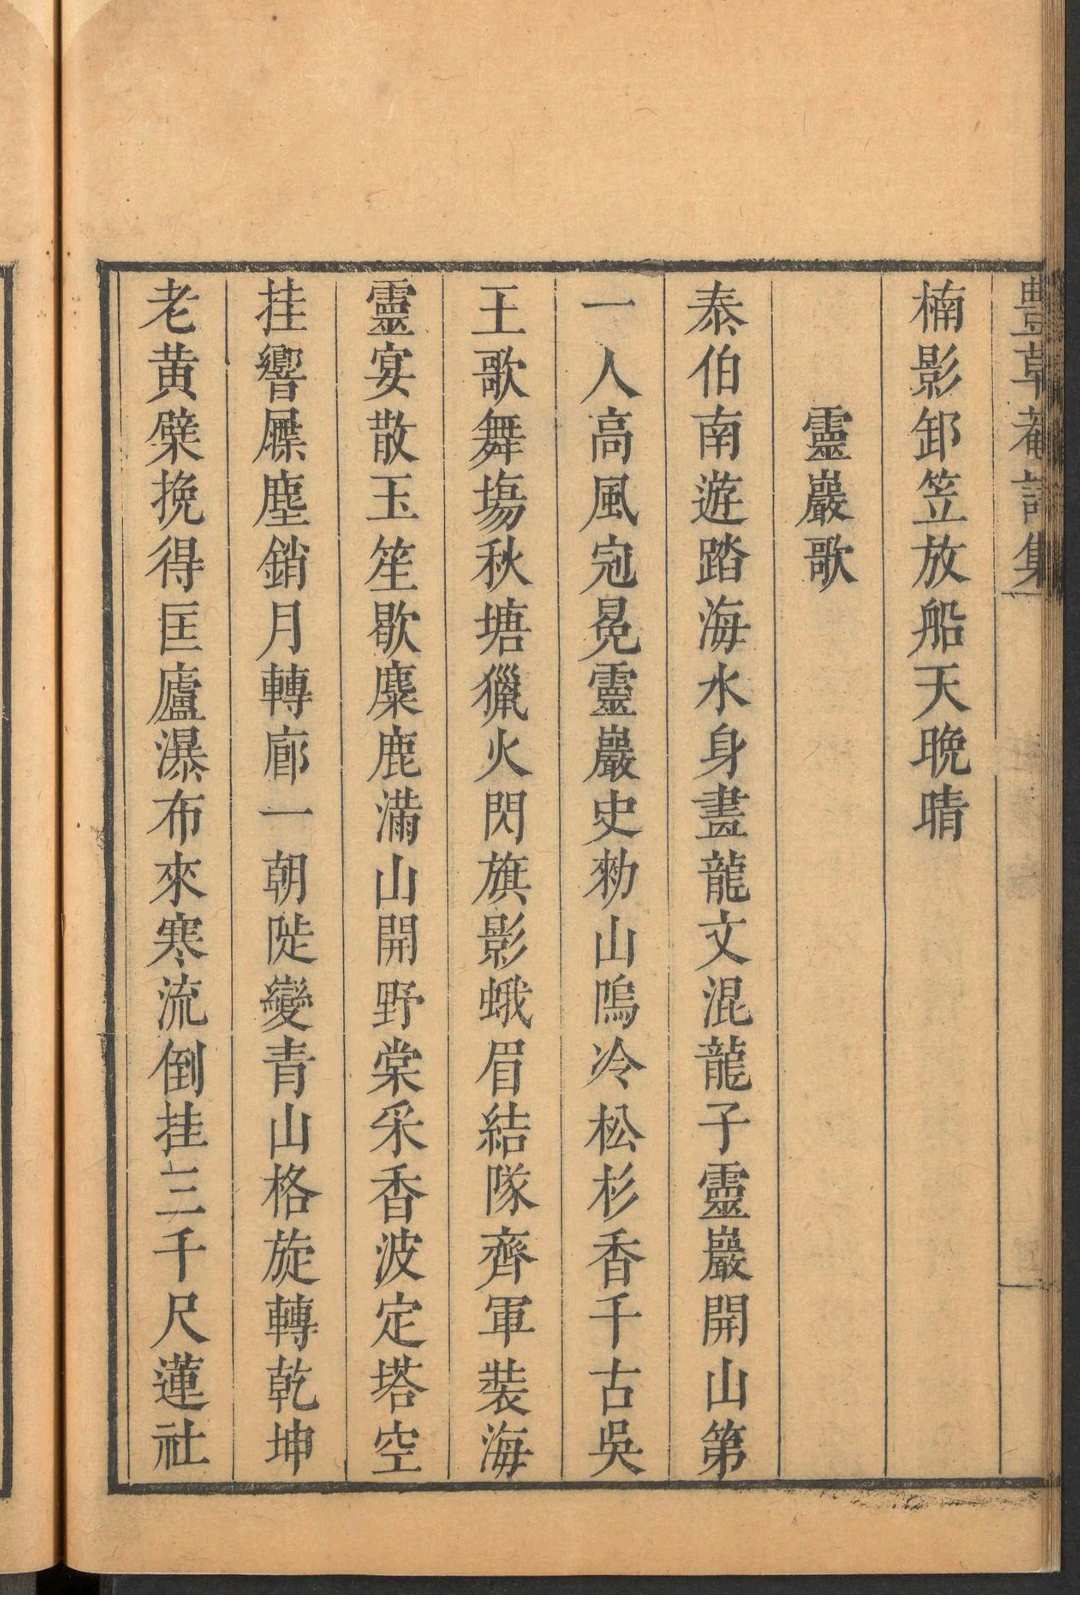 豐草菴詩集
楠影卸笠放船天晚晴
靈巖歌
泰伯南遊踏海水身畫龍文混龍子靈巖開山第
一人高風冠冕靈巖史勑山鳴冷松杉香千古吳
王歌舞塲秋塘獵火閃旗影蛾眉結隊齊軍裝海
靈宴散玉笙歇麋鹿滿山開野棠采香波定塔空
挂響屧塵銷月轉廊一朝陡變青山格旋轉乾坤
老黄檗挽得匡廬瀑布來寒流倒挂三千尺蓮社